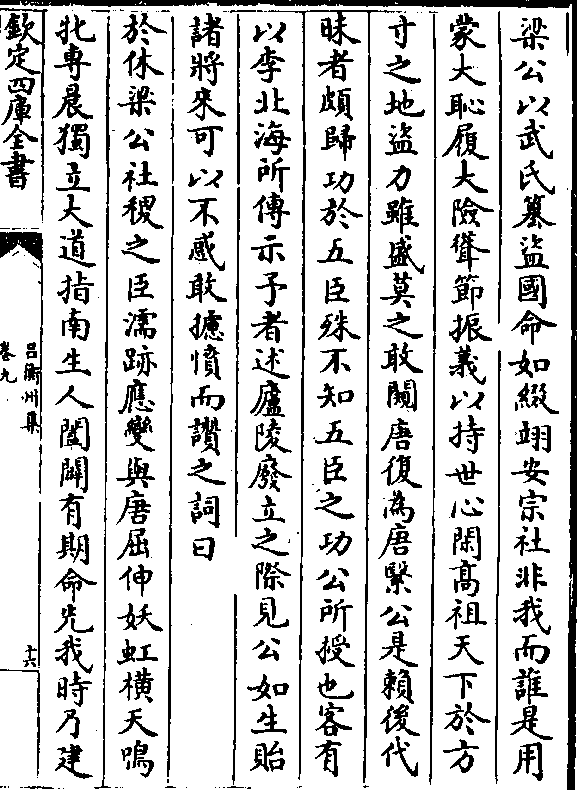 梁公以武氏簒盜國命如綴翊安宗社非我而誰是用
蒙大恥履大險聳節振義以持世心閑高祖天下於方
寸之地盜力雖盛莫之敢闚唐復為唐繄公是賴後代
昧者頗歸功於五臣殊不知五臣之功公所授也客有
以李北海所傳示予者述廬陵廢立之際見公如生貽
諸將來可以不感敢攄憤而讚之詞曰
於休梁公社稷之臣濡跡應變與唐屈伸妖虹橫天鳴
牝專晨獨立大道指南生人闔闢有期命先我時乃建
欽定四庫全書
呂衡州集
卷九
十六